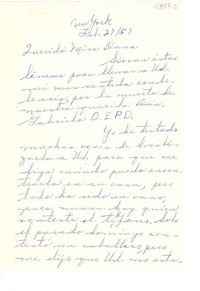 New York
Feb. 27/57
Querida Miss Dana
Sirvan éstas
líneas para llevar a Ud.
mi más sentida condo-
lencia por la muerte de
nuestra querida Doña
Gabriela Q.E.P.D.
Yo he tratado
muchas veces de locali-
zarla a Ud. para que me
diga cuándo puedo encon-
trarla en su casa, pero
todo ha sido en vano,
pues, nunca hay quien
conteste el teléfono. Sólo
el pasado domingo con-
testó un caballero, pero
me dijo que Ud. no esta-